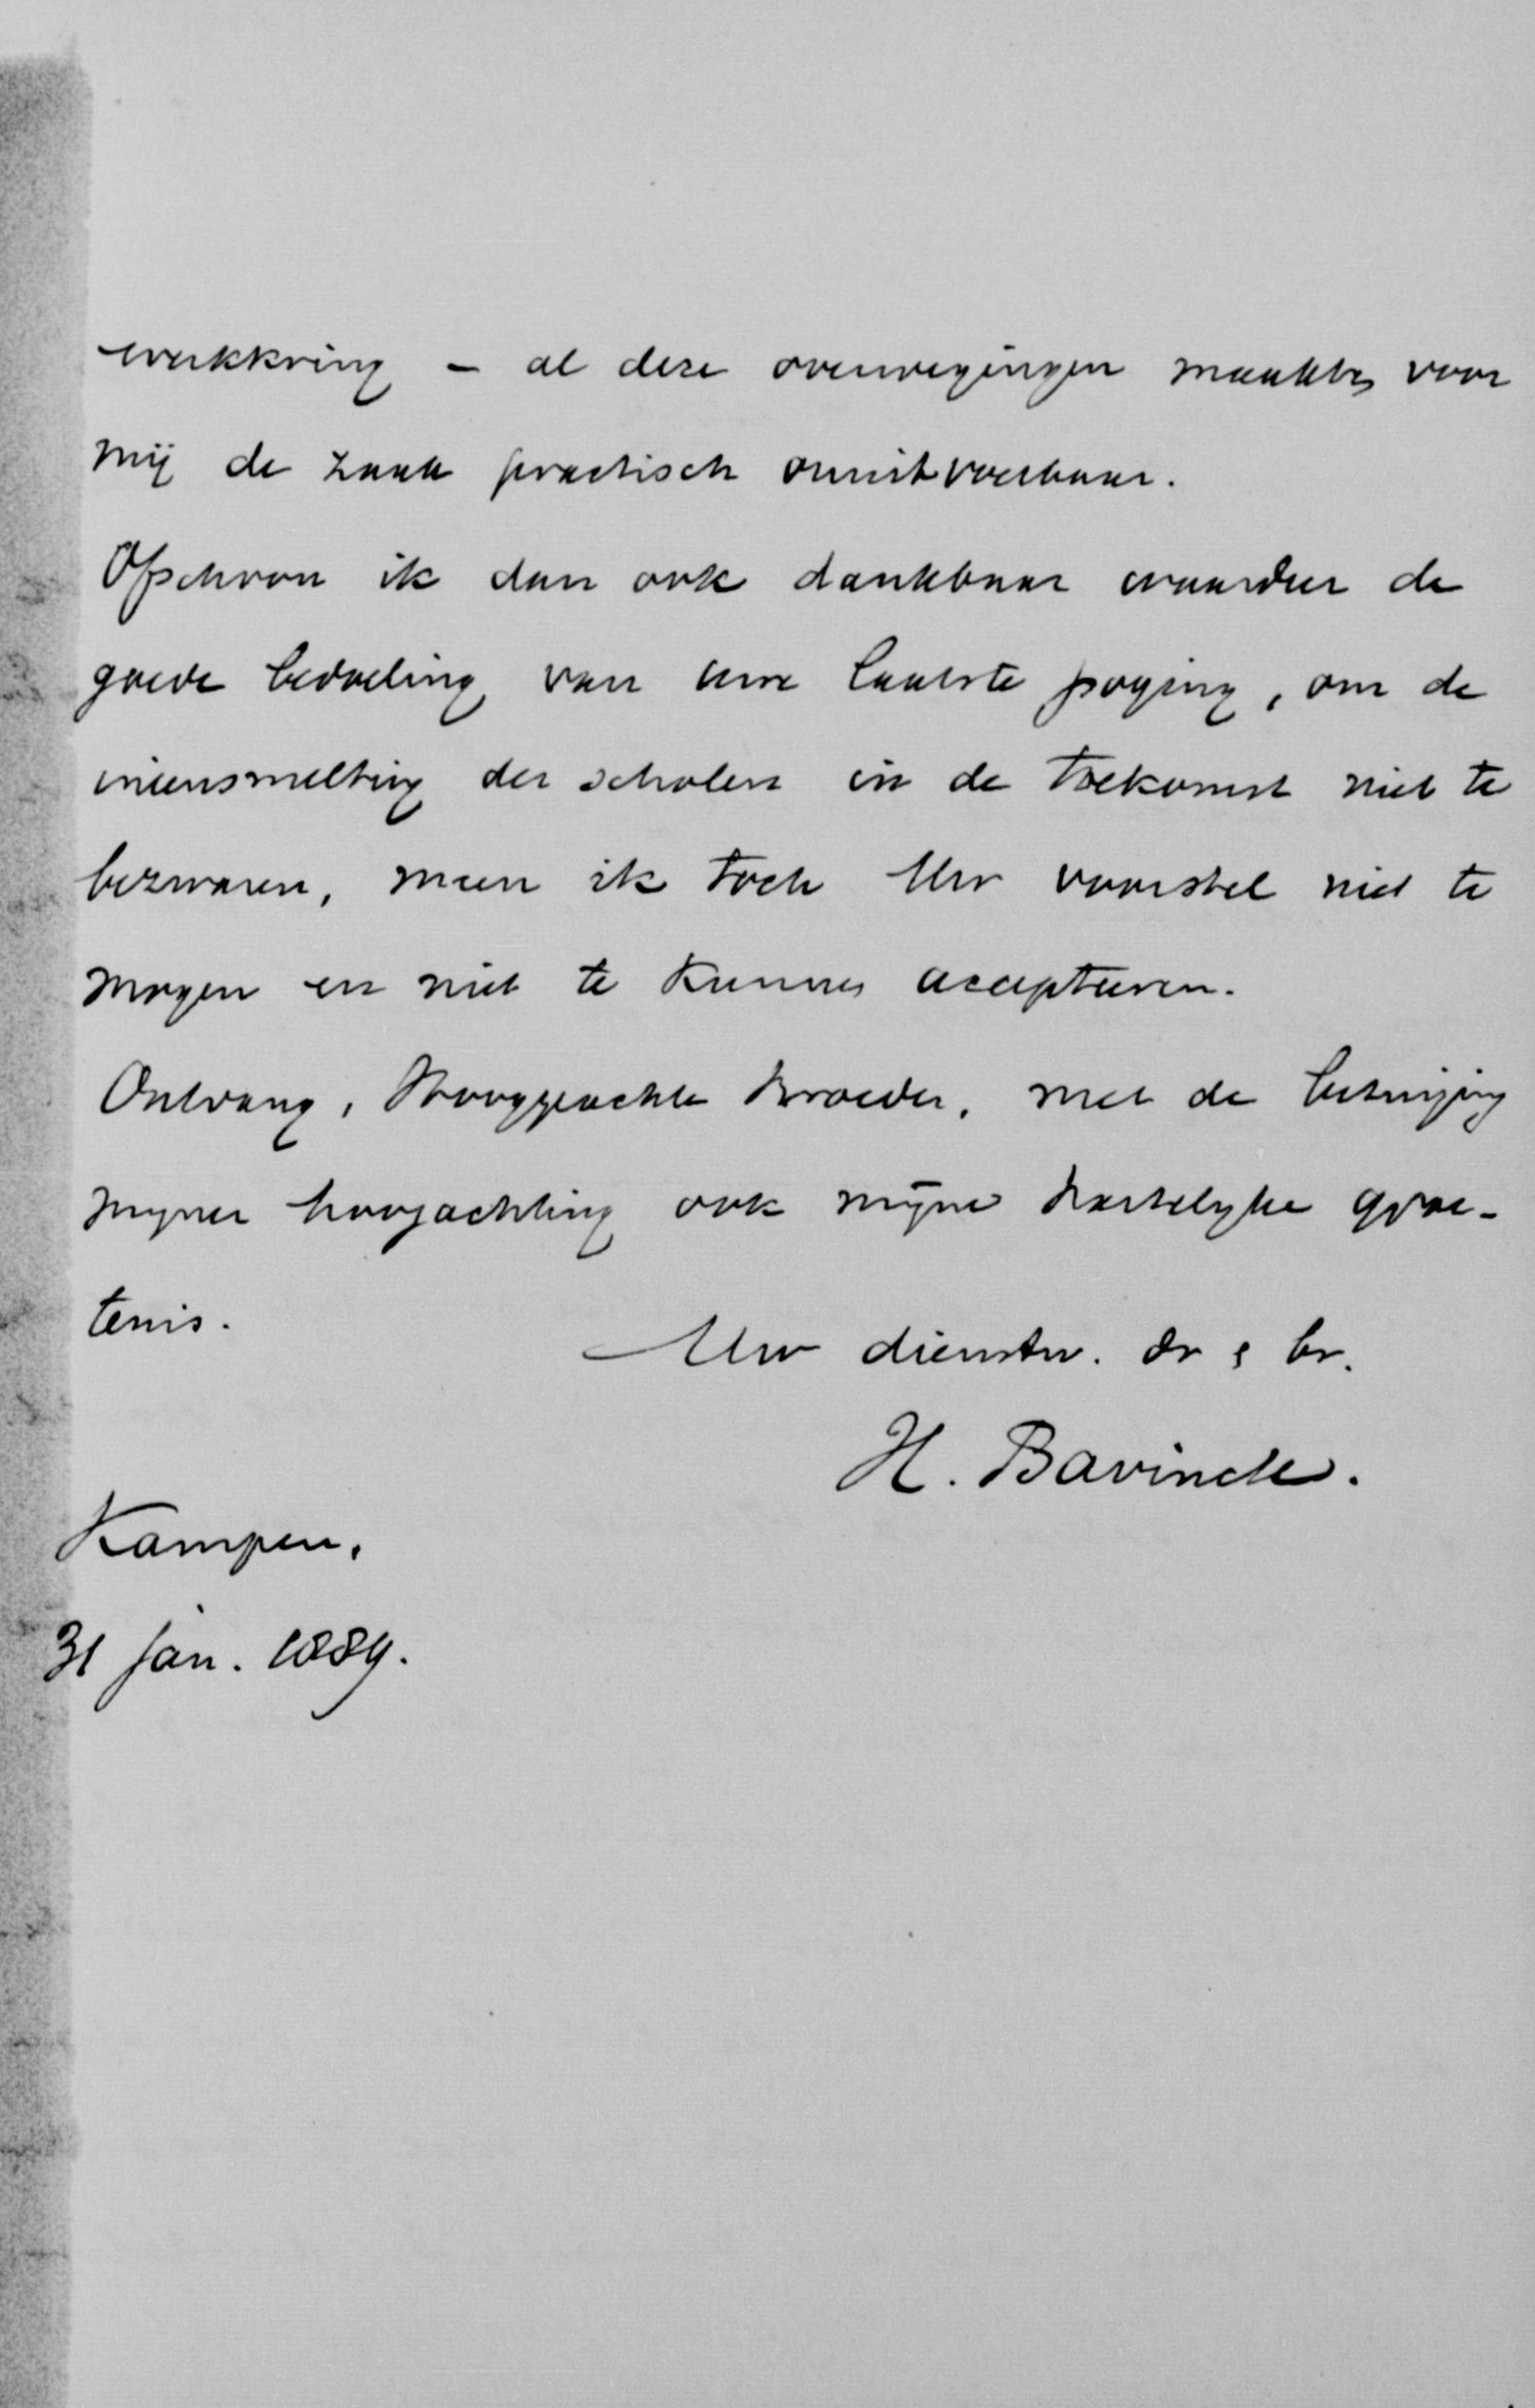 werkkring – al deze overwegingen maakten voor
mij de zaak practisch onuitvoerbaar.
Ofschoon ik dan ook dankbaar waardeer de
goede bedoeling van uwe laatste poging, om de
ineensmelting der scholen in de toekomst niet te
bezwaren, meen ik toch Uw voorstel niet te
mogen en niet te kunnen accepteeren.
Ontvang, Hooggeachte Broeder, met de betuiging
mijner hoogachting ook mijne hartelijke groe-
tenis.
Uw dienstw. dr & br.
H. Bavinck.
Kampen,
31 Jan. 1889.